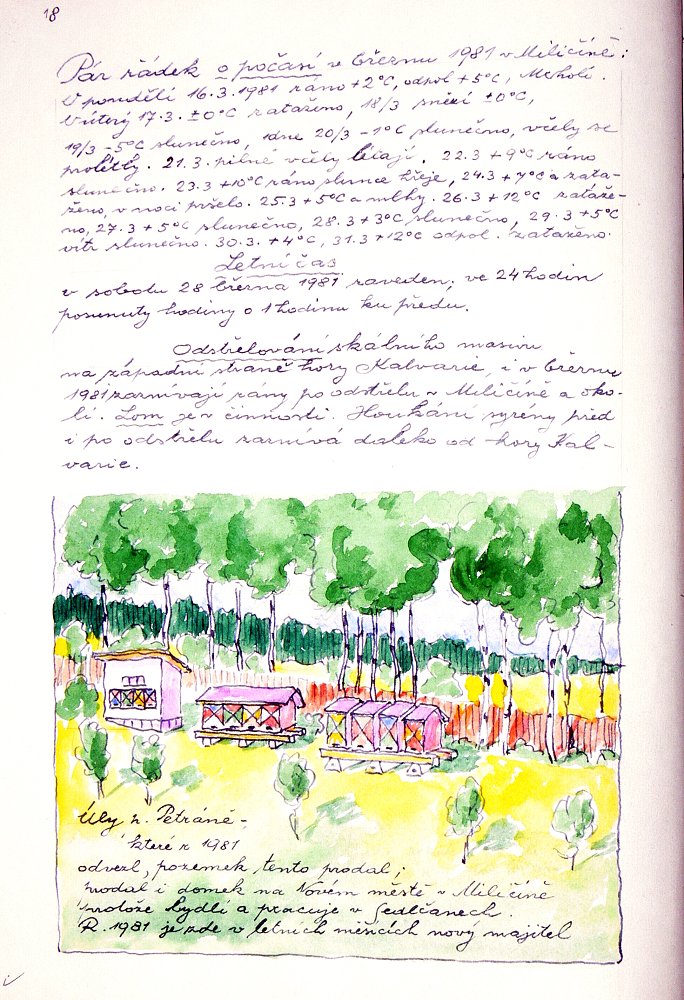 18
Pár řádek o počasí v březnu 1981 v Miličíně:
V pondělí 16.3.1981 ráno +2°C, odpol +5°C, Mrholí.
V úterý 17.3. ±0°C zataženo, 18/3 sněží ±0°C,
19/3 -5°C slunečno, dne 20/3 -1°C slunečno, včely se
prolétly. 21.3. pilně včely létají. 22.3 +9°C ráno
slunečno. 23.3 +10°C ráno slunce hřeje, 24.3 +7°C a zata-
ženo, v noci pršelo. 25.3 +5°C a mlhy. 26.3 +12°C zataže-
no, 27.3 +5°C slunečno, 28.3 +3°C slunečno, 29.3 +5°C
vítr slunečno. 30.3. +4°C, 31.3 +12°C odpol. zataženo.
Letní čas
v sobotu 28 března 1981 zaveden; ve 24 hodin
posunuty hodiny o 1 hodinu ku předu.
Odstřelování skálního masivu
na západní straně hory Kalvarie, i v březnu
1981 zaznívají rány po odstřelu v Miličíně a oko-
lí. Lom je v činnosti. Houkání syrény před
i po odstřelu zaznívá daleko od hory Kal-
varie.
Úly p. Petráně -
které r 1981
odvezl, pozemek tento prodal;
prodal i domek na Novém městě v Miličíně
protože bydlí a pracuje v Sedlčanech.
R. 1981 je zde v letních měsících nový majitel